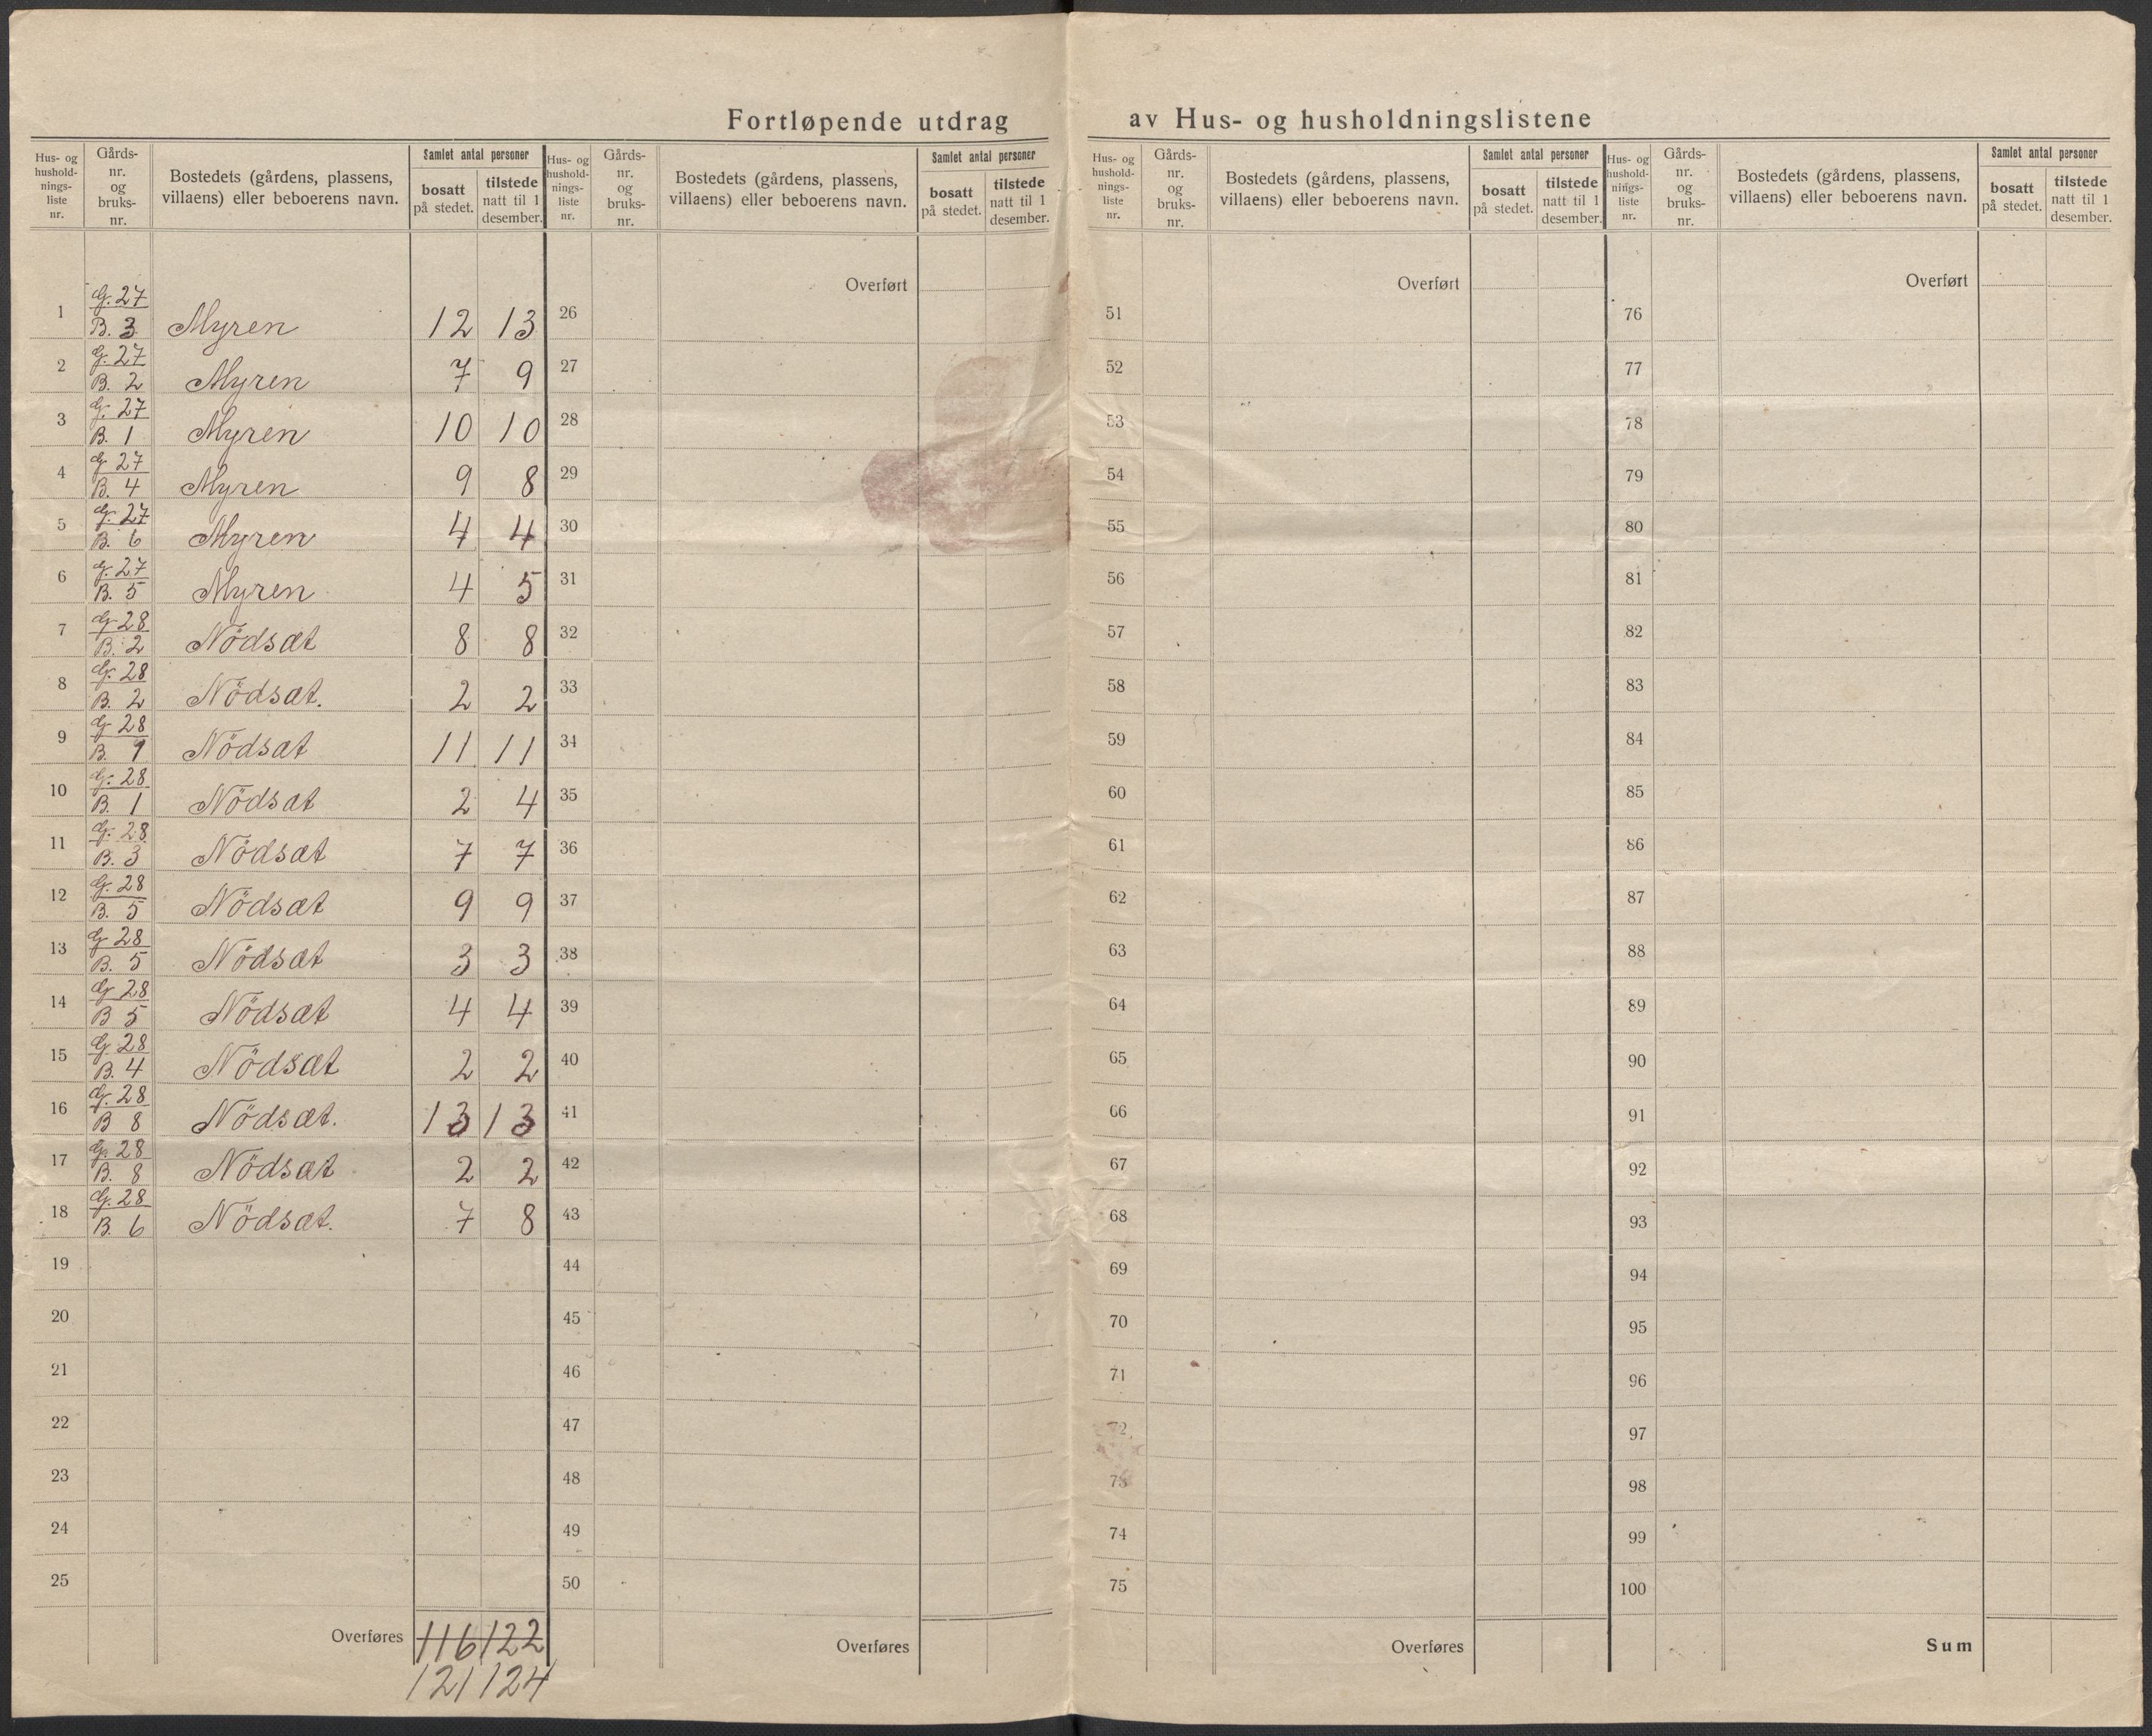 Fortløpende utdrag av Hus- og husholdningslistene
Hus- og hushold-nings-liste nr. Gårds-nr. og bruks-nr. Bostedets (gårdens, plassens, villaens) eller beboerens navn. Samlet antal personer bosatt på stedet. tilstede natt til 1 desember.
1 G. 27 B. 3 Myren 12 13
2 G. 27 B. 2 Myren 7 9
3 G. 27 B. 1 Myren 10 10
4 G. 27 B. 4 Myren 9 8
5 G. 27 B. 6 Myren 4 4
6 G. 27 B. 5 Myren 4 5
7 G. 28 B. 2 Nödsæt 8 8
8 G. 28 B. 2 Nödsæt. 2 2
9 G. 28 B. 9 Nödsæt 11 11
10 G. 28 B. 1 Nödsæt 2 4
11 G. 28 B. 3 Nödsæt 7 7
12 G. 28 B. 5 Nödsæt 9 9
13 G. 28 B. 5 Nödsæt 3 3
14 G. 28 B 5 Nödsæt 4 4
15 G. 28 B. 4 Nödsæt 2 2
16 G. 28 B 8 Nödsæt. 13 13
17 G. 28 B. 8 Nödsæt 2 2
18 G. 28 B. 6 Nödsæt. 7 8
19
20
21
22
23
24
25
Overføres 116 122
121 124
Hus- og hushold-nings-liste nr. Gårds-nr. og bruks-nr. Bostedets (gårdens, plassens, villaens) eller beboerens navn. Samlet antal personer bosatt på stedet. tilstede natt til 1 desember.
Overført
26
27
28
29
30
31
32
33
34
35
36
37
38
39
40
41
42
43
44
45
46
47
48
49
50
Overføres
Hus- og hushold-nings-liste nr. Gårds-nr. og bruks-nr. Bostedets (gårdens, plassens, villaens) eller beboerens navn. Samlet antal personer bosatt på stedet. tilstede natt til 1 desember.
Overført
51
52
53
54
55
56
57
58
59
60
61
62
63
64
65
66
67
68
69
70
71
72
73
74
75
Overføres
Hus- og hushold-nings-liste nr. Gårds-nr. og bruks-nr. Bostedets (gårdens, plassens, villaens) eller beboerens navn. Samlet antal personer bosatt på stedet. tilstede natt til 1 desember.
Overført
76
77
78
79
80
81
82
83
84
85
86
87
88
89
90
91
92
93
94
95
96
97
98
99
100
Sum